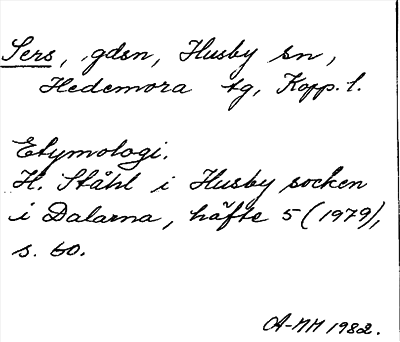 Sers, gdsn, Husby sn,
Hedemora tg, Kopp. l.
Etymologi.
H. Ståhl i Husby socken
i Dalarna, häfte 5 (1979),
s. 60.
A-MM 1982.